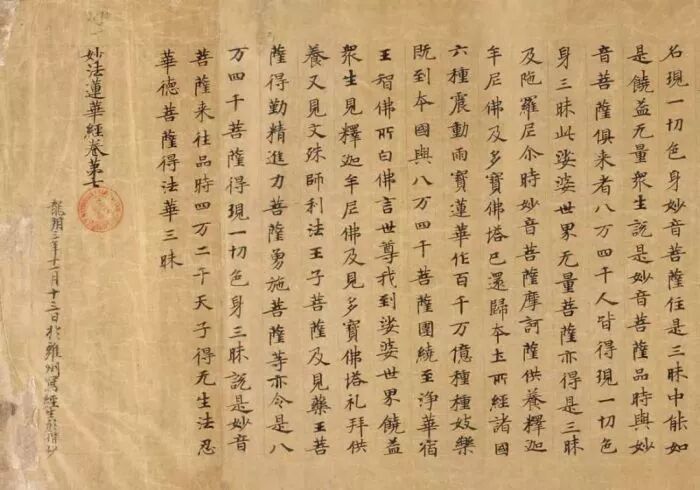 名現一切色身妙音菩薩住是三昧中能如
是饒益无量衆生說是妙音菩薩品時與妙
音菩薩俱来者八万四千人皆得現一切色
身三昧此娑婆世界无量菩薩亦得是三昧
及陁羅尼尒時妙音菩薩摩訶薩供養釋迦
牟尼佛及多寶佛塔已還歸本土所經諸國
六種震動雨寶蓮華作百千万億種種妓樂
既到本國與八万四千菩薩圍繞至淨華宿
王智佛所白佛言世尊我到娑婆世界饒益
衆生見釋迦牟尼佛及見多寶佛塔礼拜供
養又見文殊師利法王子菩薩及見藥王菩
薩得勤精進力菩薩勇施菩薩等亦令是八
万四千菩薩得現一切色身三昧說是妙音
菩薩来往品時四万二千天子得无生法忍
華德菩薩得法華三昧
妙法蓮華經卷第七
龍朔三年十月十三日於雍州寫經生